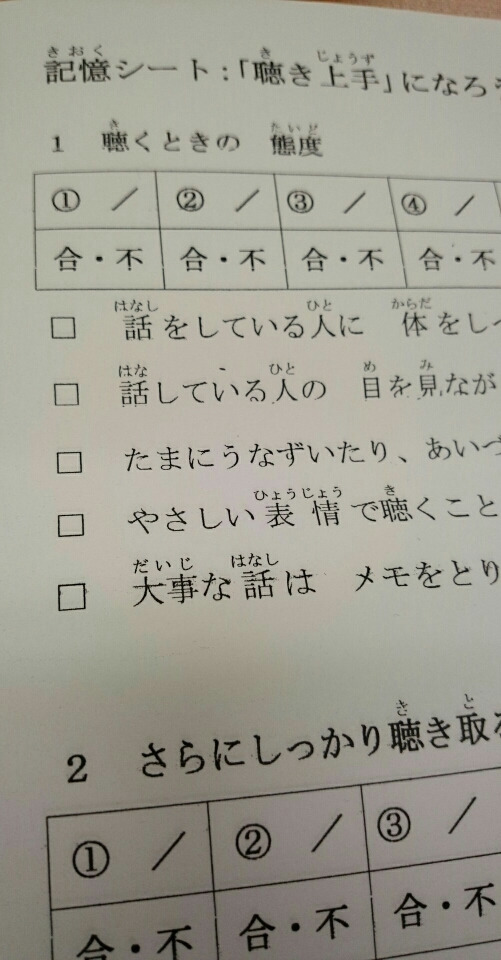 記憶シート:「聴き上手」になろ
1 聴くときの 態度
① / ② / ③ / ④ /
合・不 合・不 合・不 合・不
□ 話をしている人に 体をし
□ 話している人の 目を見なが
□ たまにうなずいたり、あいづ
□ やさしい表情で聴くこと
□ 大事な話は メモをとり
2 さらにしっかり聴き取る
① / ② / ③ /
合・不 合・不 合・不